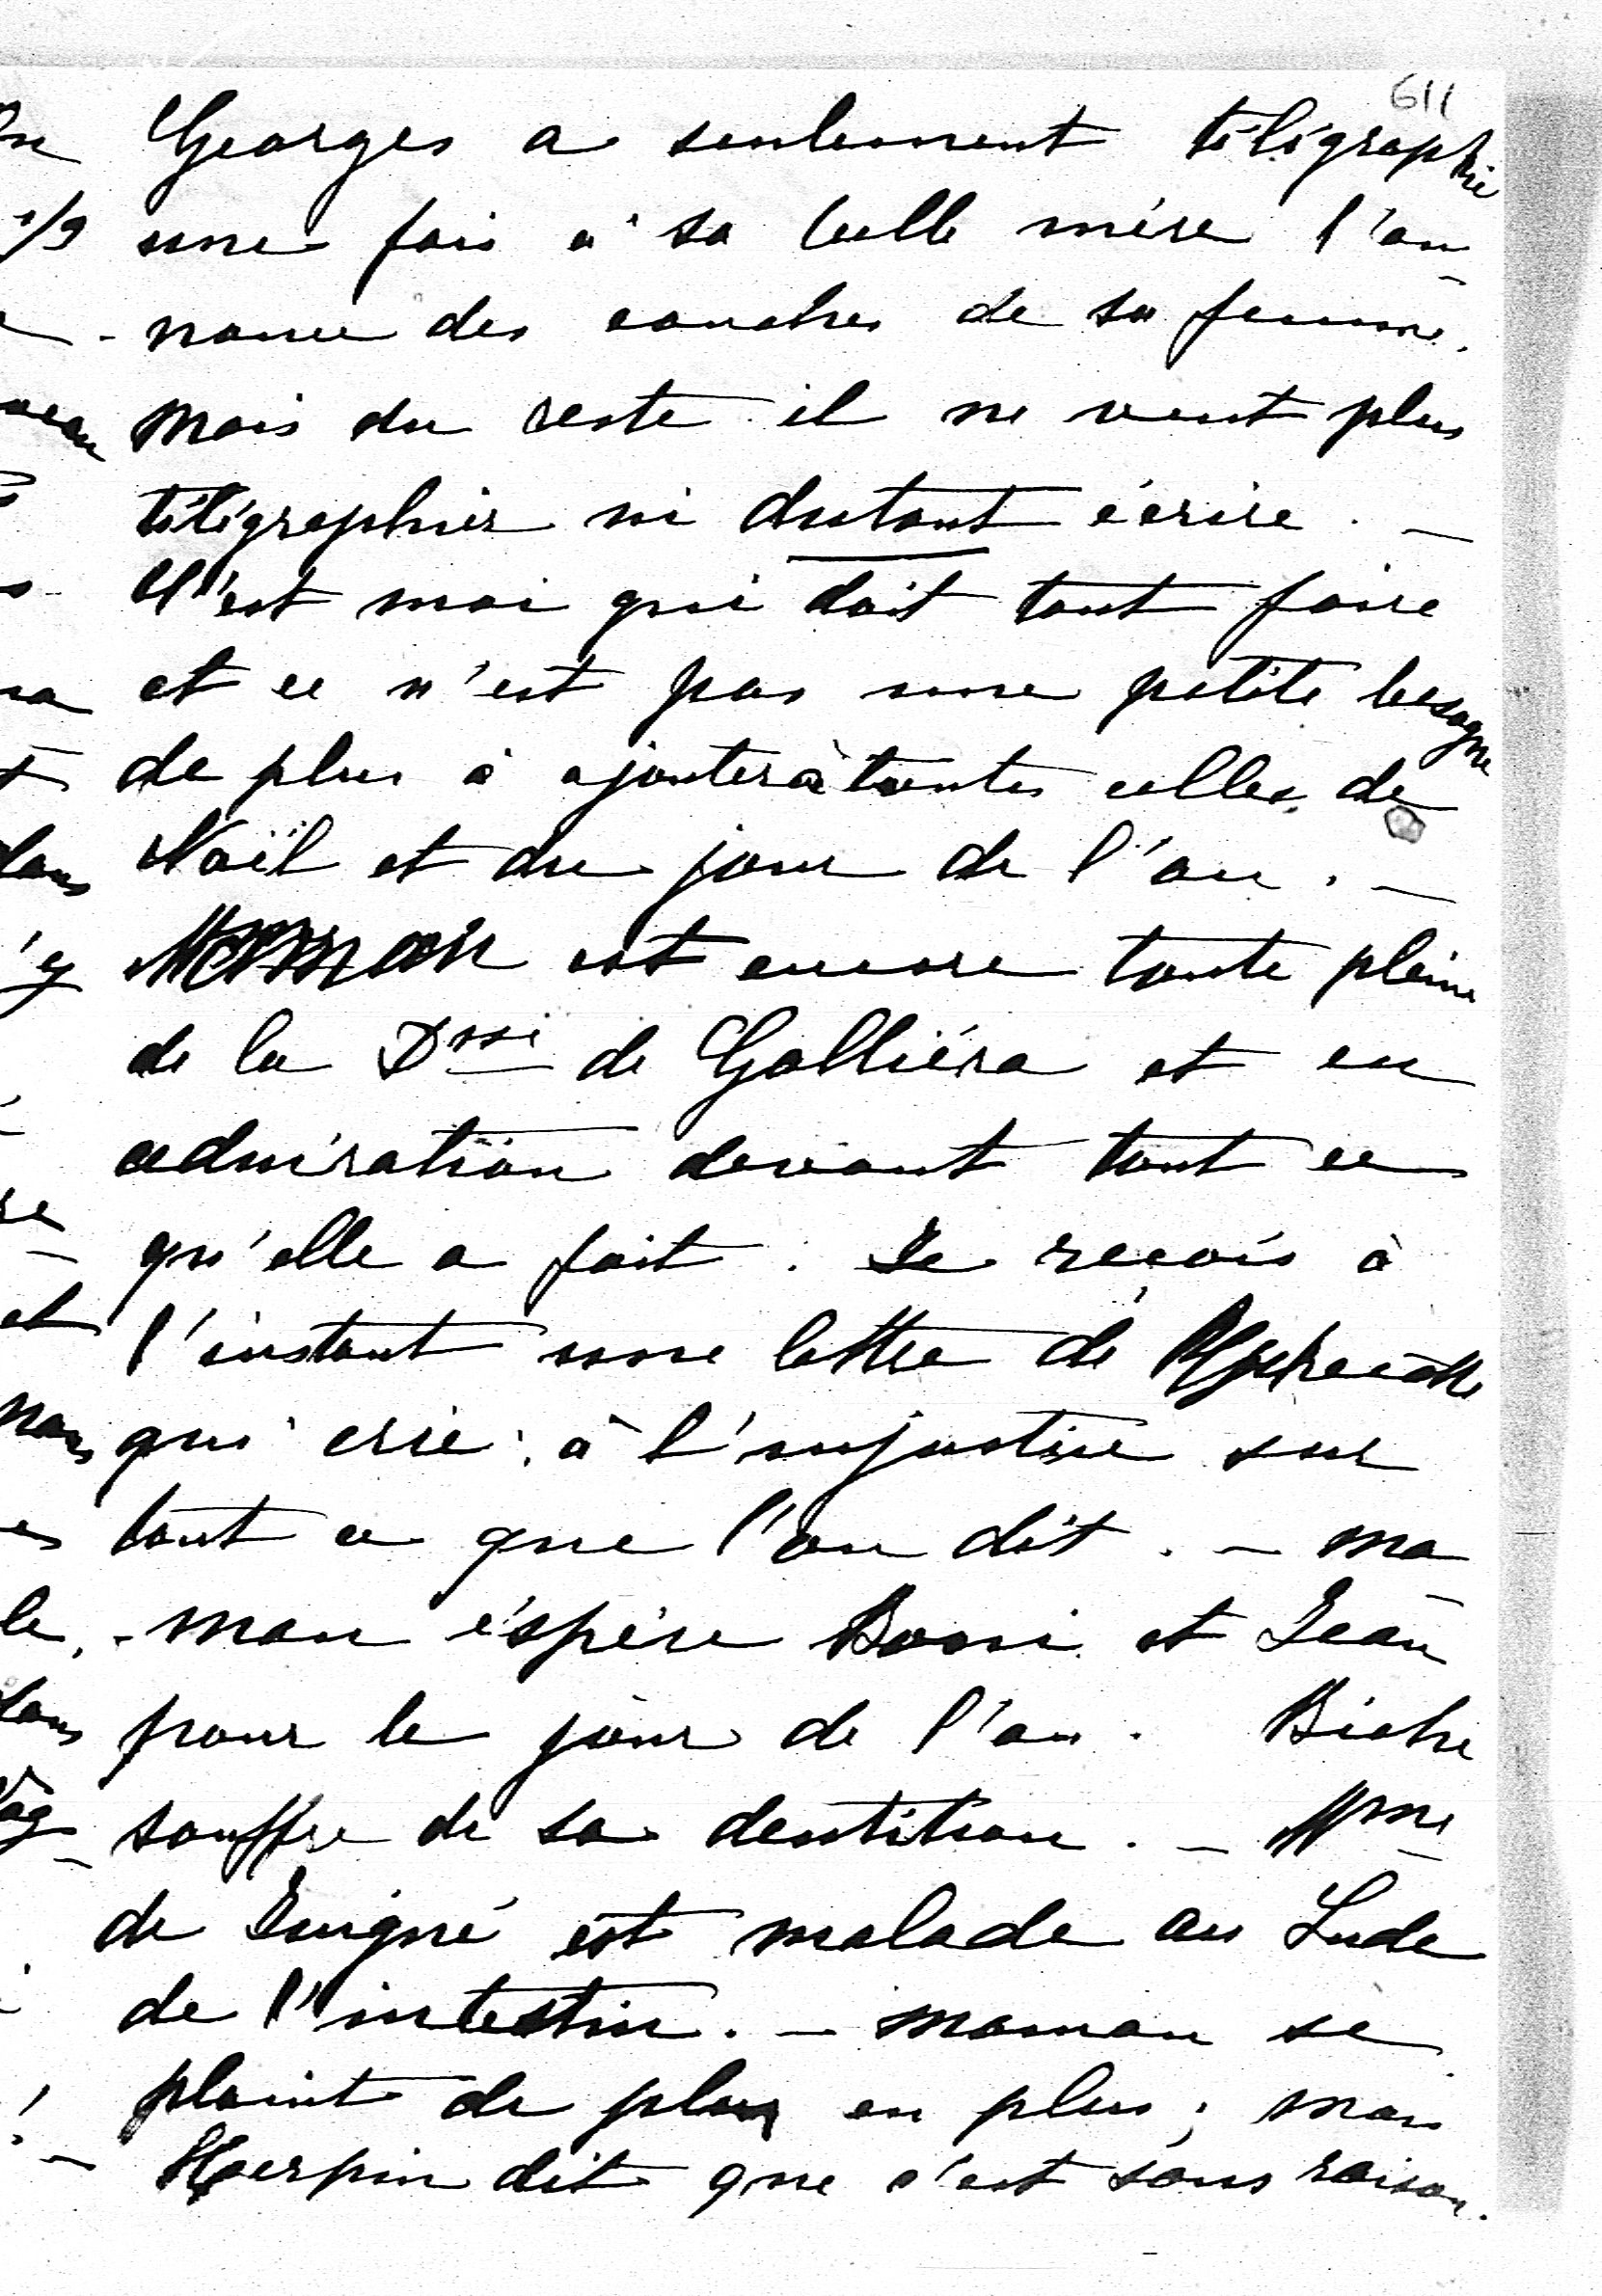 611
Georges a seulement télégraphié
une fois à sa belle mère l'an-
-nonce des couches de sa femme.
mais du reste il ne veut plus
télégraphier ni surtout écrire. _
C'est moi qui doit tout faire
et ce n'est pas une petite besogne
de plus à ajouter à toutes celles de
Noël et du jour de l'an. _
Maman est encore toute pleine
de la Dsse de Galliéra et en
admiration devant tout ce
qu'elle a fait. Je reçois à
l'instant une lettre de
qui crie à l'injustice sur
tout ce que l'on dit. _ ma-
-man espère et Jean
pour le jour de l'an. Biche
souffre de sa dentition. _ Mme
de Juigné est malade au Lude
de l'intestin. _ maman se
plaint de plus en plus; mais
Herpin dit que c'est sans raison.